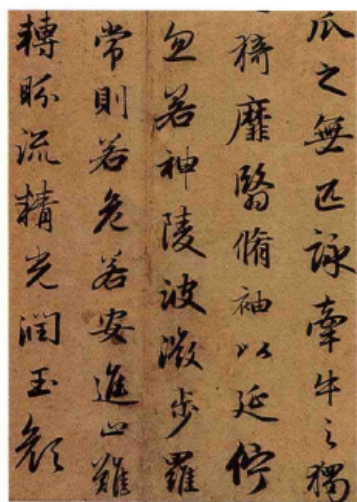 瓜之無匹詠牽牛之獨
猗靡翳脩袖以延佇
忽若神陵波微步羅
常則若危若安進止難
轉眄流精光潤玉顏